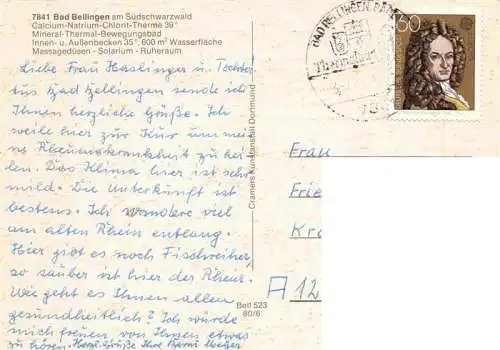 7841 Bad Bellingen am Südschwarzwald
Calcium-Natrium-Chlorit-Therme 39°
Mineral-Thermal-Bewegungsbad
Innen- u. Außenbecken 35°, 600 m² Wasserfläche
Messagedüsen - Solarium - Ruheraum
Liebe Frau Haslinger u. Tochter
aus Bad Bellingen sende ich
Ihnen herzliche Grüße. Ich
weile hier zur Kur um mei-
ne Rheumakrankheit zu hei-
len. Das Klima hier ist sehr
mild. Die Unterkunft ist
bestens. Ich wandere viel
am alten Rhein entlang.
Hier gibt es noch Fischreiher,
so sauber ist hier der Rhein.
Wie geht es Ihnen allen
gesundheitlich? Ich würde
mich freuen von Ihnen etwas
zu hören. Herzl. Grüße Ihre
Cramers Kunstanstalt Dortmund
Bell 523
80/6
BAD BELLINGEN
Thermalbad
60
Frau
Frie
Kr
A 12